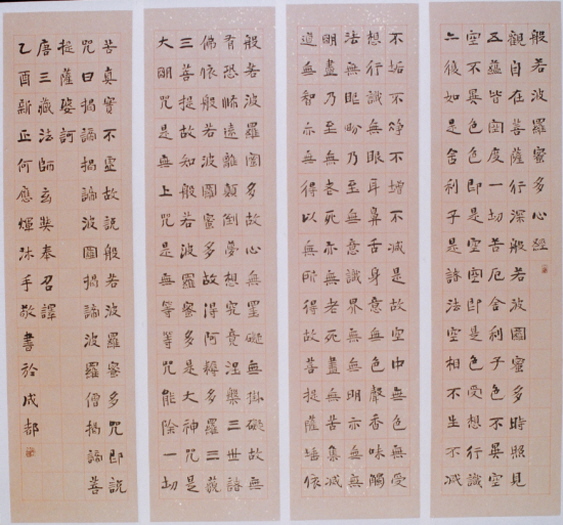 般若波羅蜜多心經
觀自在菩薩行深般若波羅蜜多時照見
五蘊皆空度一切苦厄舍利子色不異空
空不異色色即是空空即是色受想行識
亦復如是舍利子是諸法空相不生不滅
不垢不淨不增不減是故空中無色無受
想行識無眼耳鼻舌身意無色聲香味觸
法無眼界乃至無意識界無無明亦無無
明盡乃至無老死亦無老死盡無苦集滅
道無智亦無得以無所得故菩提薩埵依
般若波羅蜜多故心無罣礙無掛礙故無
有恐怖遠離顛倒夢想究竟涅槃三世諸
佛依般若波羅蜜多故得阿耨多羅三藐
三菩提故知般若波羅蜜多是大神咒是
大明咒是無上咒是無等等咒能除一切
苦真實不虛故說般若波羅蜜多咒即說
咒曰揭諦揭諦波羅揭諦波羅僧揭諦菩
提薩婆訶
唐三藏法師玄奘奉召譯
乙酉新正何應輝沐手敬書於成都